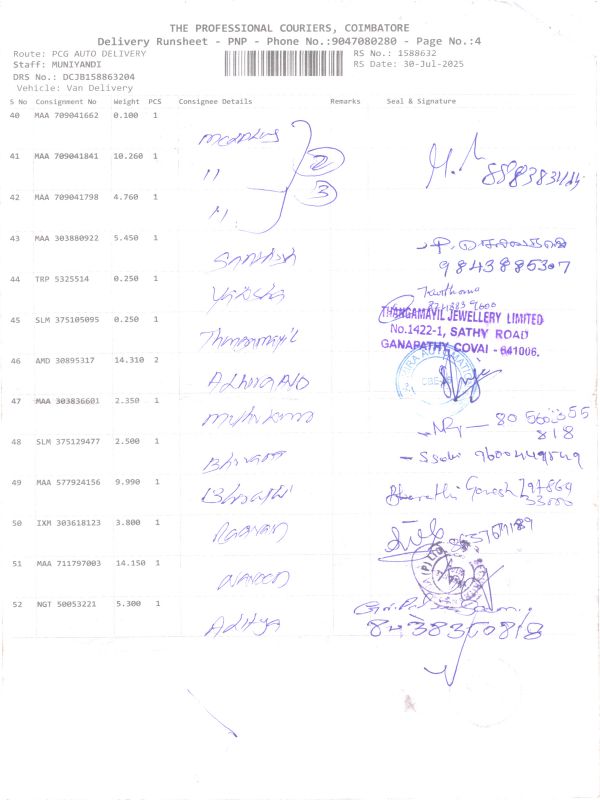 THE PROFESSIONAL COURIERS, COIMBATORE
Delivery Runsheet - PNP - Phone No.:9047080280 - Page No.:4
Route: PCG AUTO DELIVERY
RS No.: 1588632
Staff: MUNIYANDI
RS Date: 30-Jul-2025
DRS No.: DCJB158863204
Vehicle: Van Delivery
S No Consignment No Weight PCS Consignee Details Remarks Seal & Signature
40 MAA 709041662 0.100 1
41 MAA 709041841 10.260 1
2
42 MAA 709041798 4.760 1
3
43 MAA 303880922 5.450 1
Santhosh
9843885307
44 TRP 5325514 0.250 1
45 SLM 375105095 0.250 1
Thangamayil
THANGAMAYIL JEWELLERY LIMITED
No.1422-1, SATHY ROAD
GANAPATHY, COVAI - 641006.
46 AMD 30895317 14.310 2
47 MAA 303836601 2.350 1
Muthu Kumar
48 SLM 375129477 2.500 1
49 MAA 577924156 9.990 1
Bharathi
Bharathi Ganesh
50 IXM 303618123 3.800 1
51 MAA 711797003 14.150 1
52 NGT 50053221 5.300 1
Aditya
8438350818